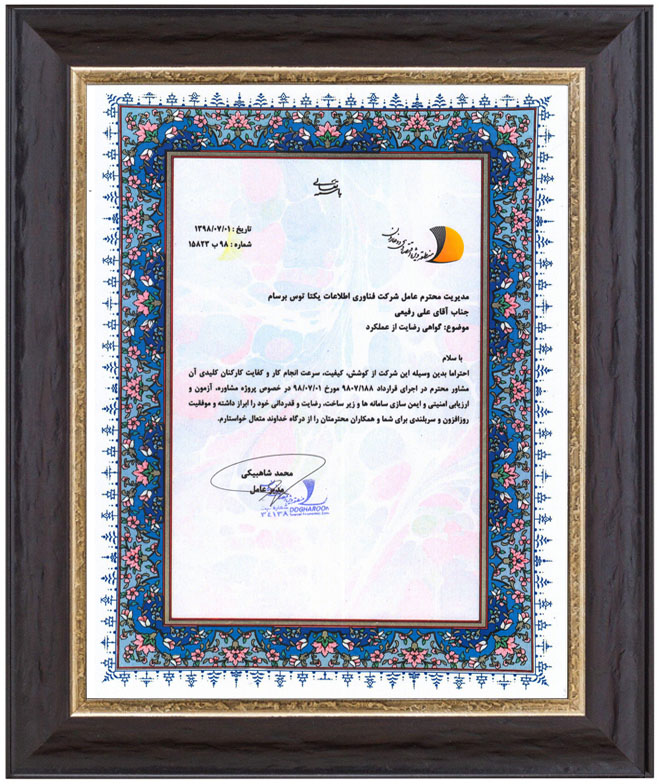 باسمه تعالی
تاریخ : ۱۳۹۸/۰۷/۰۱
شماره : ۹۸ ب ۱۵۸۲۳
منطقه ویژه اقتصادی دوغارون
مدیریت محترم عامل شرکت فناوری اطلاعات یکتا توس برسام
جناب آقای علی رفیعی
موضوع: گواهی رضایت از عملکرد
با سلام
احتراما بدین وسیله این شرکت از کوشش، کیفیت، سرعت انجام کار و کفایت کارکنان کلیدی آن
مشاور محترم در اجرای قرارداد ۹۸۰۷/۱۸۸ مورخ ۹۸/۰۷/۰۱ در خصوص پروژه مشاوره، آزمون و
ارزیابی امنیتی و ایمن سازی سامانه ها و زیر ساخت، رضایت و قدردانی خود را ابراز داشته و موفقیت
روزافزون و سربلندی برای شما و همکاران محترمتان را از درگاه خداوند متعال خواستارم.
محمد شاهبیکی
مدیر عامل
DOGHAROON
۳۴۱۳۸